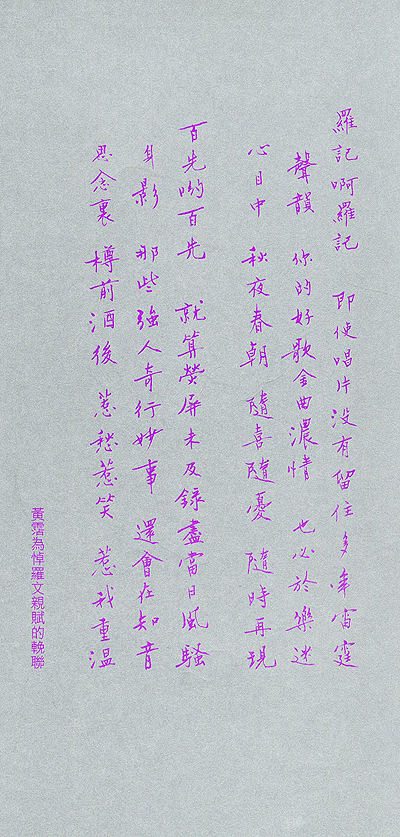 羅記啊羅記 即使唱片没有留住多年雷霆
聲韻 你的好歌金曲濃情 也必於樂迷
心目中 秋夜春朝 隨喜隨憂 隨時再現
百先喲百先 就算熒屏未及錄盡當日風騷
身影 那些強人奇行妙事 還會在知音
思念裏 樽前酒後 惹愁惹笑 惹我重溫
黃霑為悼羅文親賦的輓聯